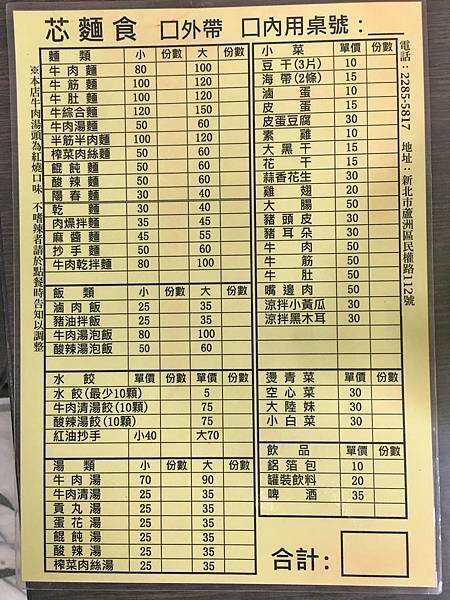 芯麵食 口外帶 口內用桌號：
電話：2285-5817 地址：新北市蘆洲區民權路112號
※本店牛肉湯頭為紅燒口味 不嗜辣者請於點餐時告知以調整
麵類 小 份數 大 份數
牛肉麵 80 100
牛筋麵 100 120
牛肚麵 100 120
牛綜合麵 120 150
牛肉湯麵 50 60
半筋半肉麵 100 120
榨菜肉絲麵 50 60
餛飩麵 50 60
酸辣麵 50 60
陽春麵 30 40
乾麵 30 40
肉燥拌麵 35 45
麻醬麵 45 55
抄手麵 50 60
牛肉乾拌麵 80 100
飯類 小 份數 大 份數
滷肉飯 25 35
豬油拌飯 25 35
牛肉湯泡飯 80 100
酸辣湯泡飯 50 60
水餃 單價 份數 單價 份數
水餃(最少10顆) 5
牛肉清湯餃(10顆) 75
酸辣湯餃(10顆) 75
紅油抄手 小40 大70
湯類 小 份數 大 份數
牛肉湯 70 90
牛肉清湯 25 35
貢丸湯 25 35
蛋花湯 25 35
餛飩湯 25 35
酸辣湯 25 35
榨菜肉絲湯 25 35
小菜 單價 份數
豆干(3片) 10
海帶(2條) 15
滷蛋 10
皮蛋 15
皮蛋豆腐 30
素雞 10
大黑干 15
花干 15
蒜香花生 30
雞翅 20
大腸 50
豬頭皮 50
豬耳朵 50
牛肉 50
牛筋 50
牛肚 50
嘴邊肉 50
涼拌小黃瓜 30
涼拌黑木耳 30
燙青菜 單價 份數
空心菜 30
大陸妹 30
小白菜 30
飲品 單價 份數
鋁箔包 10
罐裝飲料 20
啤酒 35
合計：